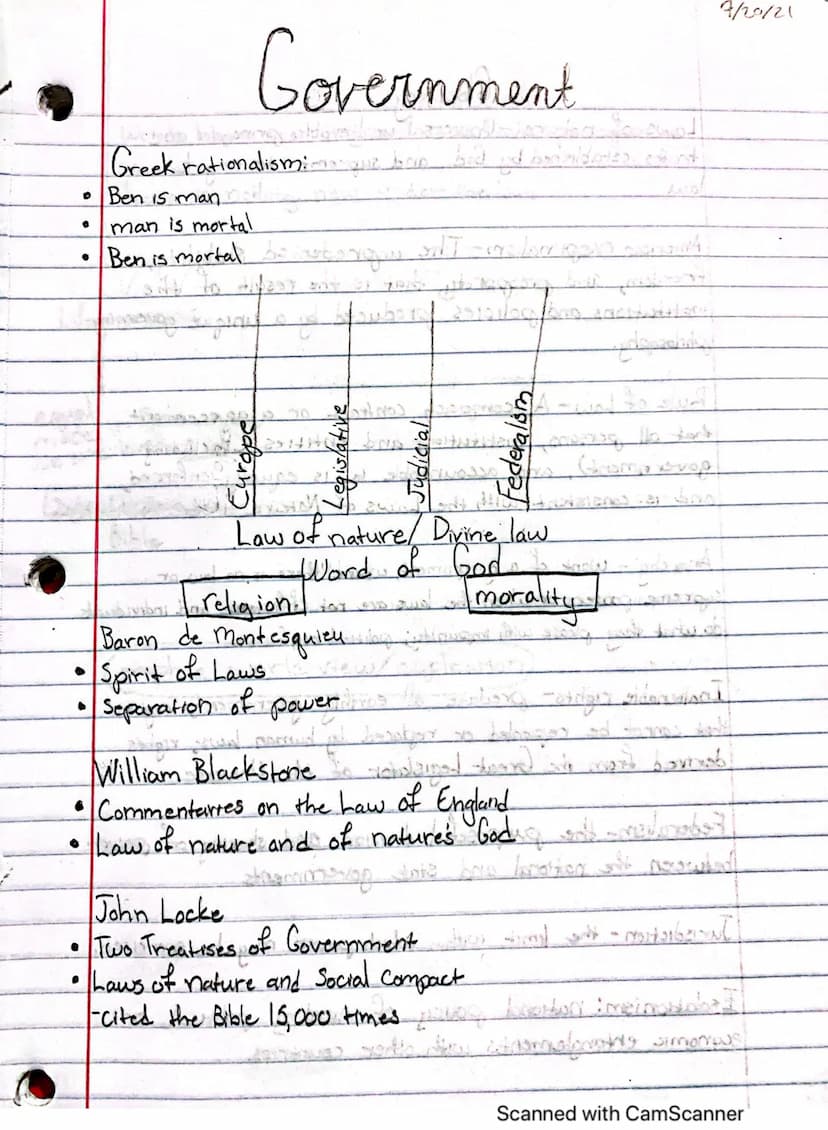 9/20/21
Government
Greek rationalism:
• Ben is man
• man is mortal
• Ben is mortal
Europe
Legislative
Judicial
Federalism
Law of nature/ Divine law
Word of God
religion
morality
Baron de Montesquieu
• Spirit of Laws
• Separation of power
William Blackstone
• Commentarres on the Law of England
• Law of nature and of nature's God
John Locke
• Two Treatises of Government
• Laws of nature and Social Compact
-cited the Bible 15,000 times
Scanned with CamScanner